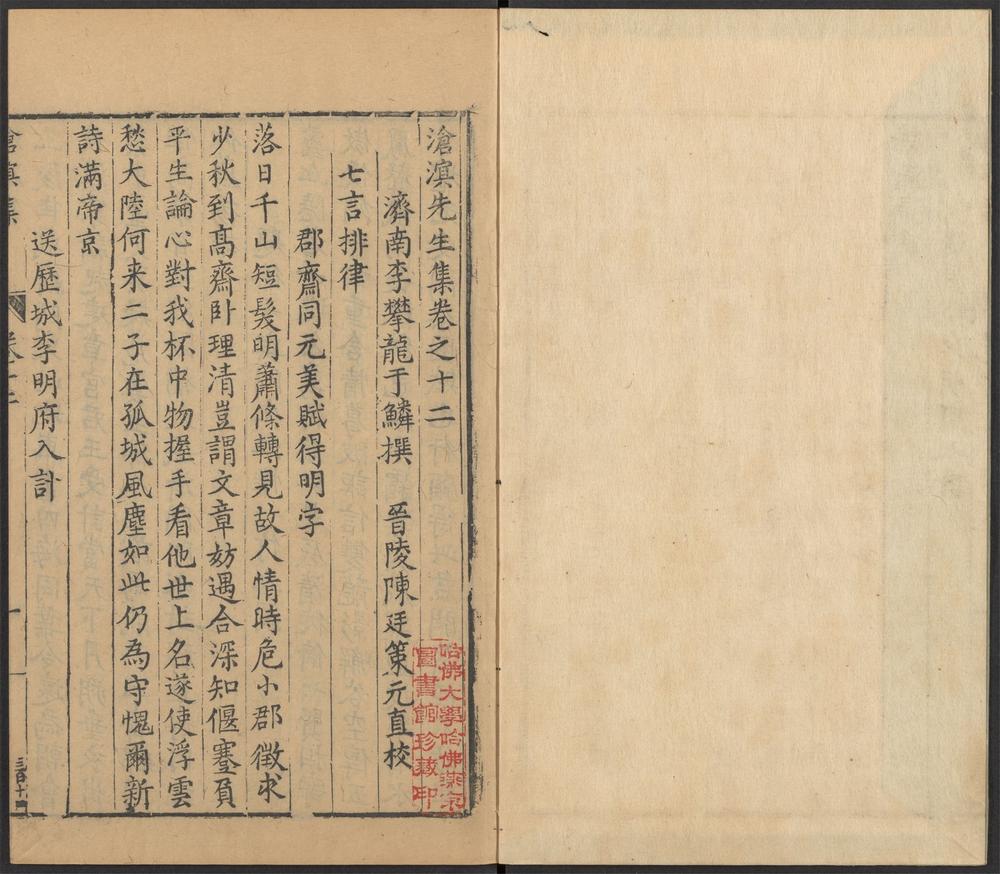 滄溟先生集卷之十二
濟南李攀龍于鱗撰 晉陵陳廷策元直校
七言排律
郡齋同元美賦得明字
落日千山短髮明蕭條轉見故人情時危小郡徵求
少秋到髙齋卧理清豈謂文章妨遇合深知偃蹇負
平生論心對我杯中物握手看他世上名遂使浮雲
愁大陸何来二子在孤城風塵如此仍為守愧爾新
詩滿帝京
送歷城李明府入計
滄溟集
卷十二
一
哈佛大學哈佛燕京
圖書館珍藏印